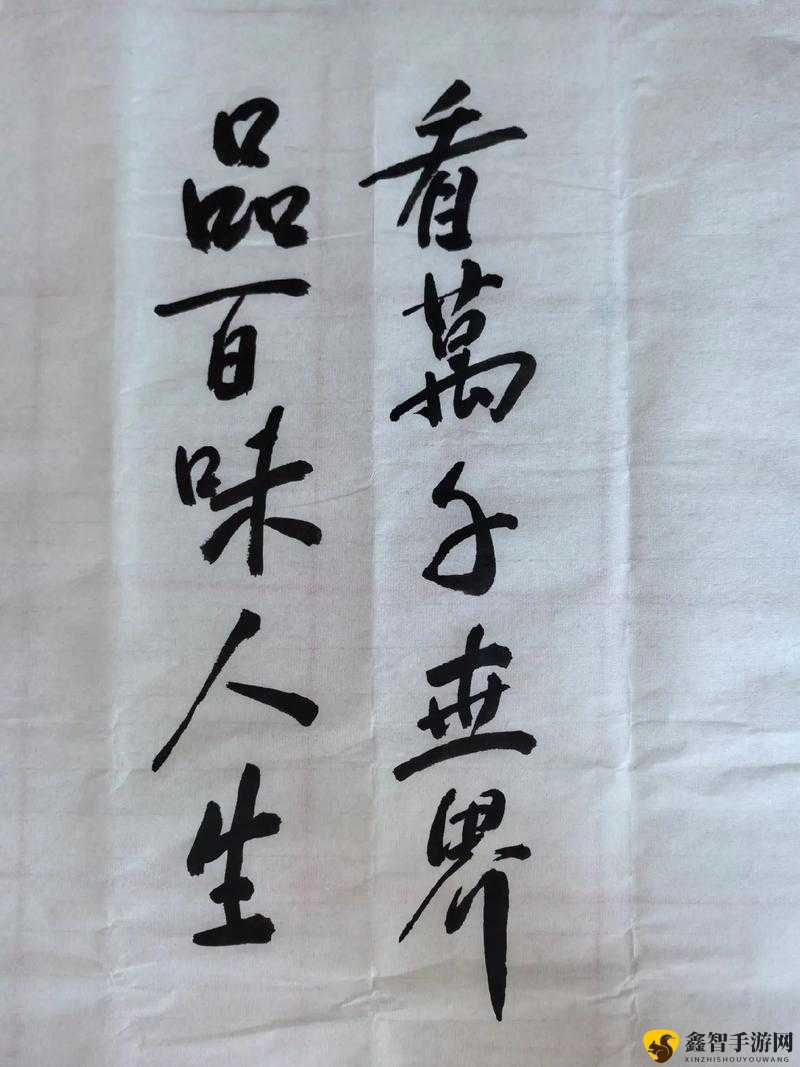 看萬千世界
品百味人生
鑫智手游网
XINZHISHOUYOUWANG